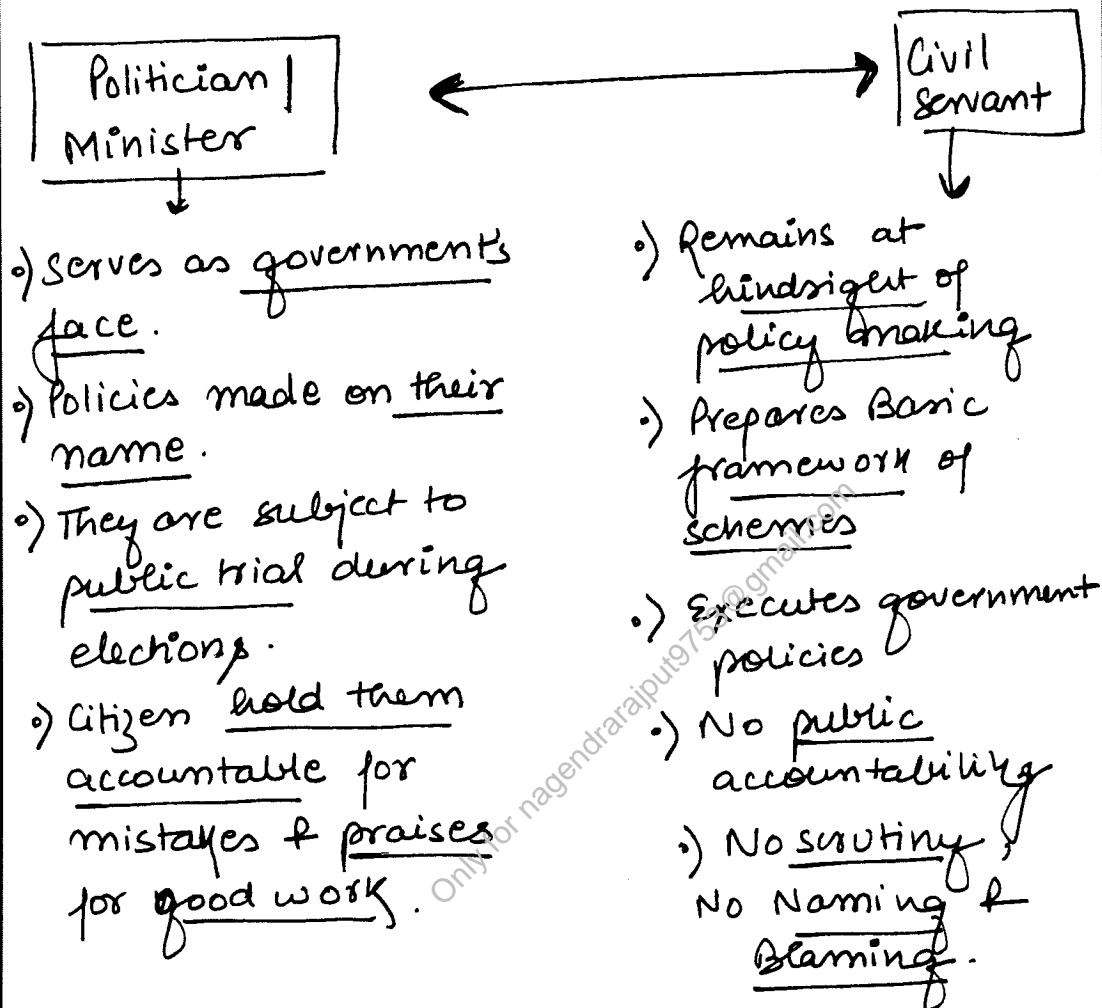 Politician |
Minister
Civil
Servant
•) Serves as government's
face.
•) Policies made on their
name.
•) They are subject to
public trial during
elections.
•) Citizen hold them
accountable for
mistakes & praises
for good work.
•) Remains at
hindsight of
policy making
•) Prepares Basic
framework of
schemes
•) Executes government
policies
•) No public
accountability
•) No scrutiny,
No Naming &
Blaming.
Only for nagendrarajput9753@gmail.com